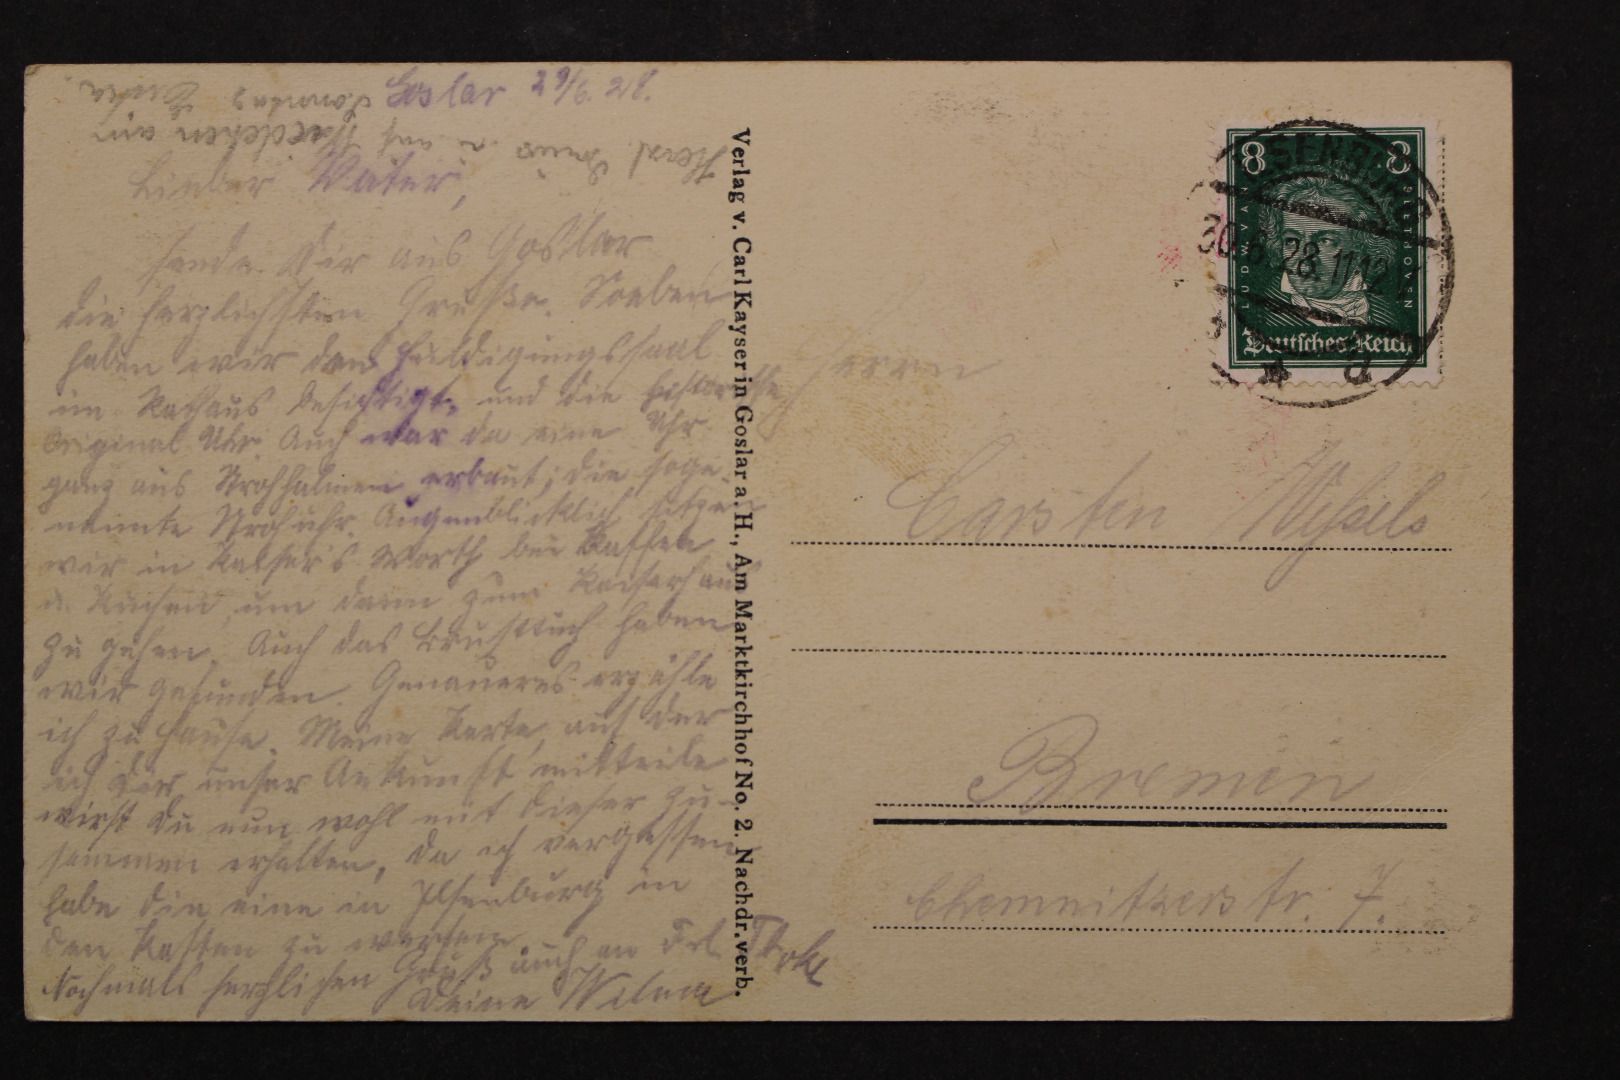 Goslar 29/6. 28.
Lieber Vater,
sende Dir aus Goslar
die herzlichsten Grüße. Soeben
haben wir den Huldigungssaal
im Rathaus besichtigt, und die historische
Original Uhr. Auch war da eine Uhr
ganz aus Strohhalmen erbaut; die soge-
nannte Strohuhr. Augenblicklich sitzen
wir in Kaisers Worth bei Kaffee
u. Kuchen, um dann zum Kaiserhaus
zu gehen. Auch das Brusttuch haben
wir gefunden. Genaueres erzähle
ich zu Hause. Meine Karte, auf der
ich Dir unser Ankunft mitteile
wirst Du nun wohl mit dieser zu-
sammen erhalten, da ich vergessen
habe die eine in Ilsenburg in
den Kasten zu werfen.
Nochmals herzlichen Gruß auch an Frl.
Deine
Herzl. Gruß u. auf
Verlag v. Carl Kayser in Goslar a. H., Am Marktkirchhof No. 2. Nachdr. verb.
8 8
LUDW. VAN BEETHOVEN
Deutsches Reich
ILSENBURG
30.6.28. 11-12
Herrn
Carsten Wessels
Bremen
Chemnitzerstr. 7.